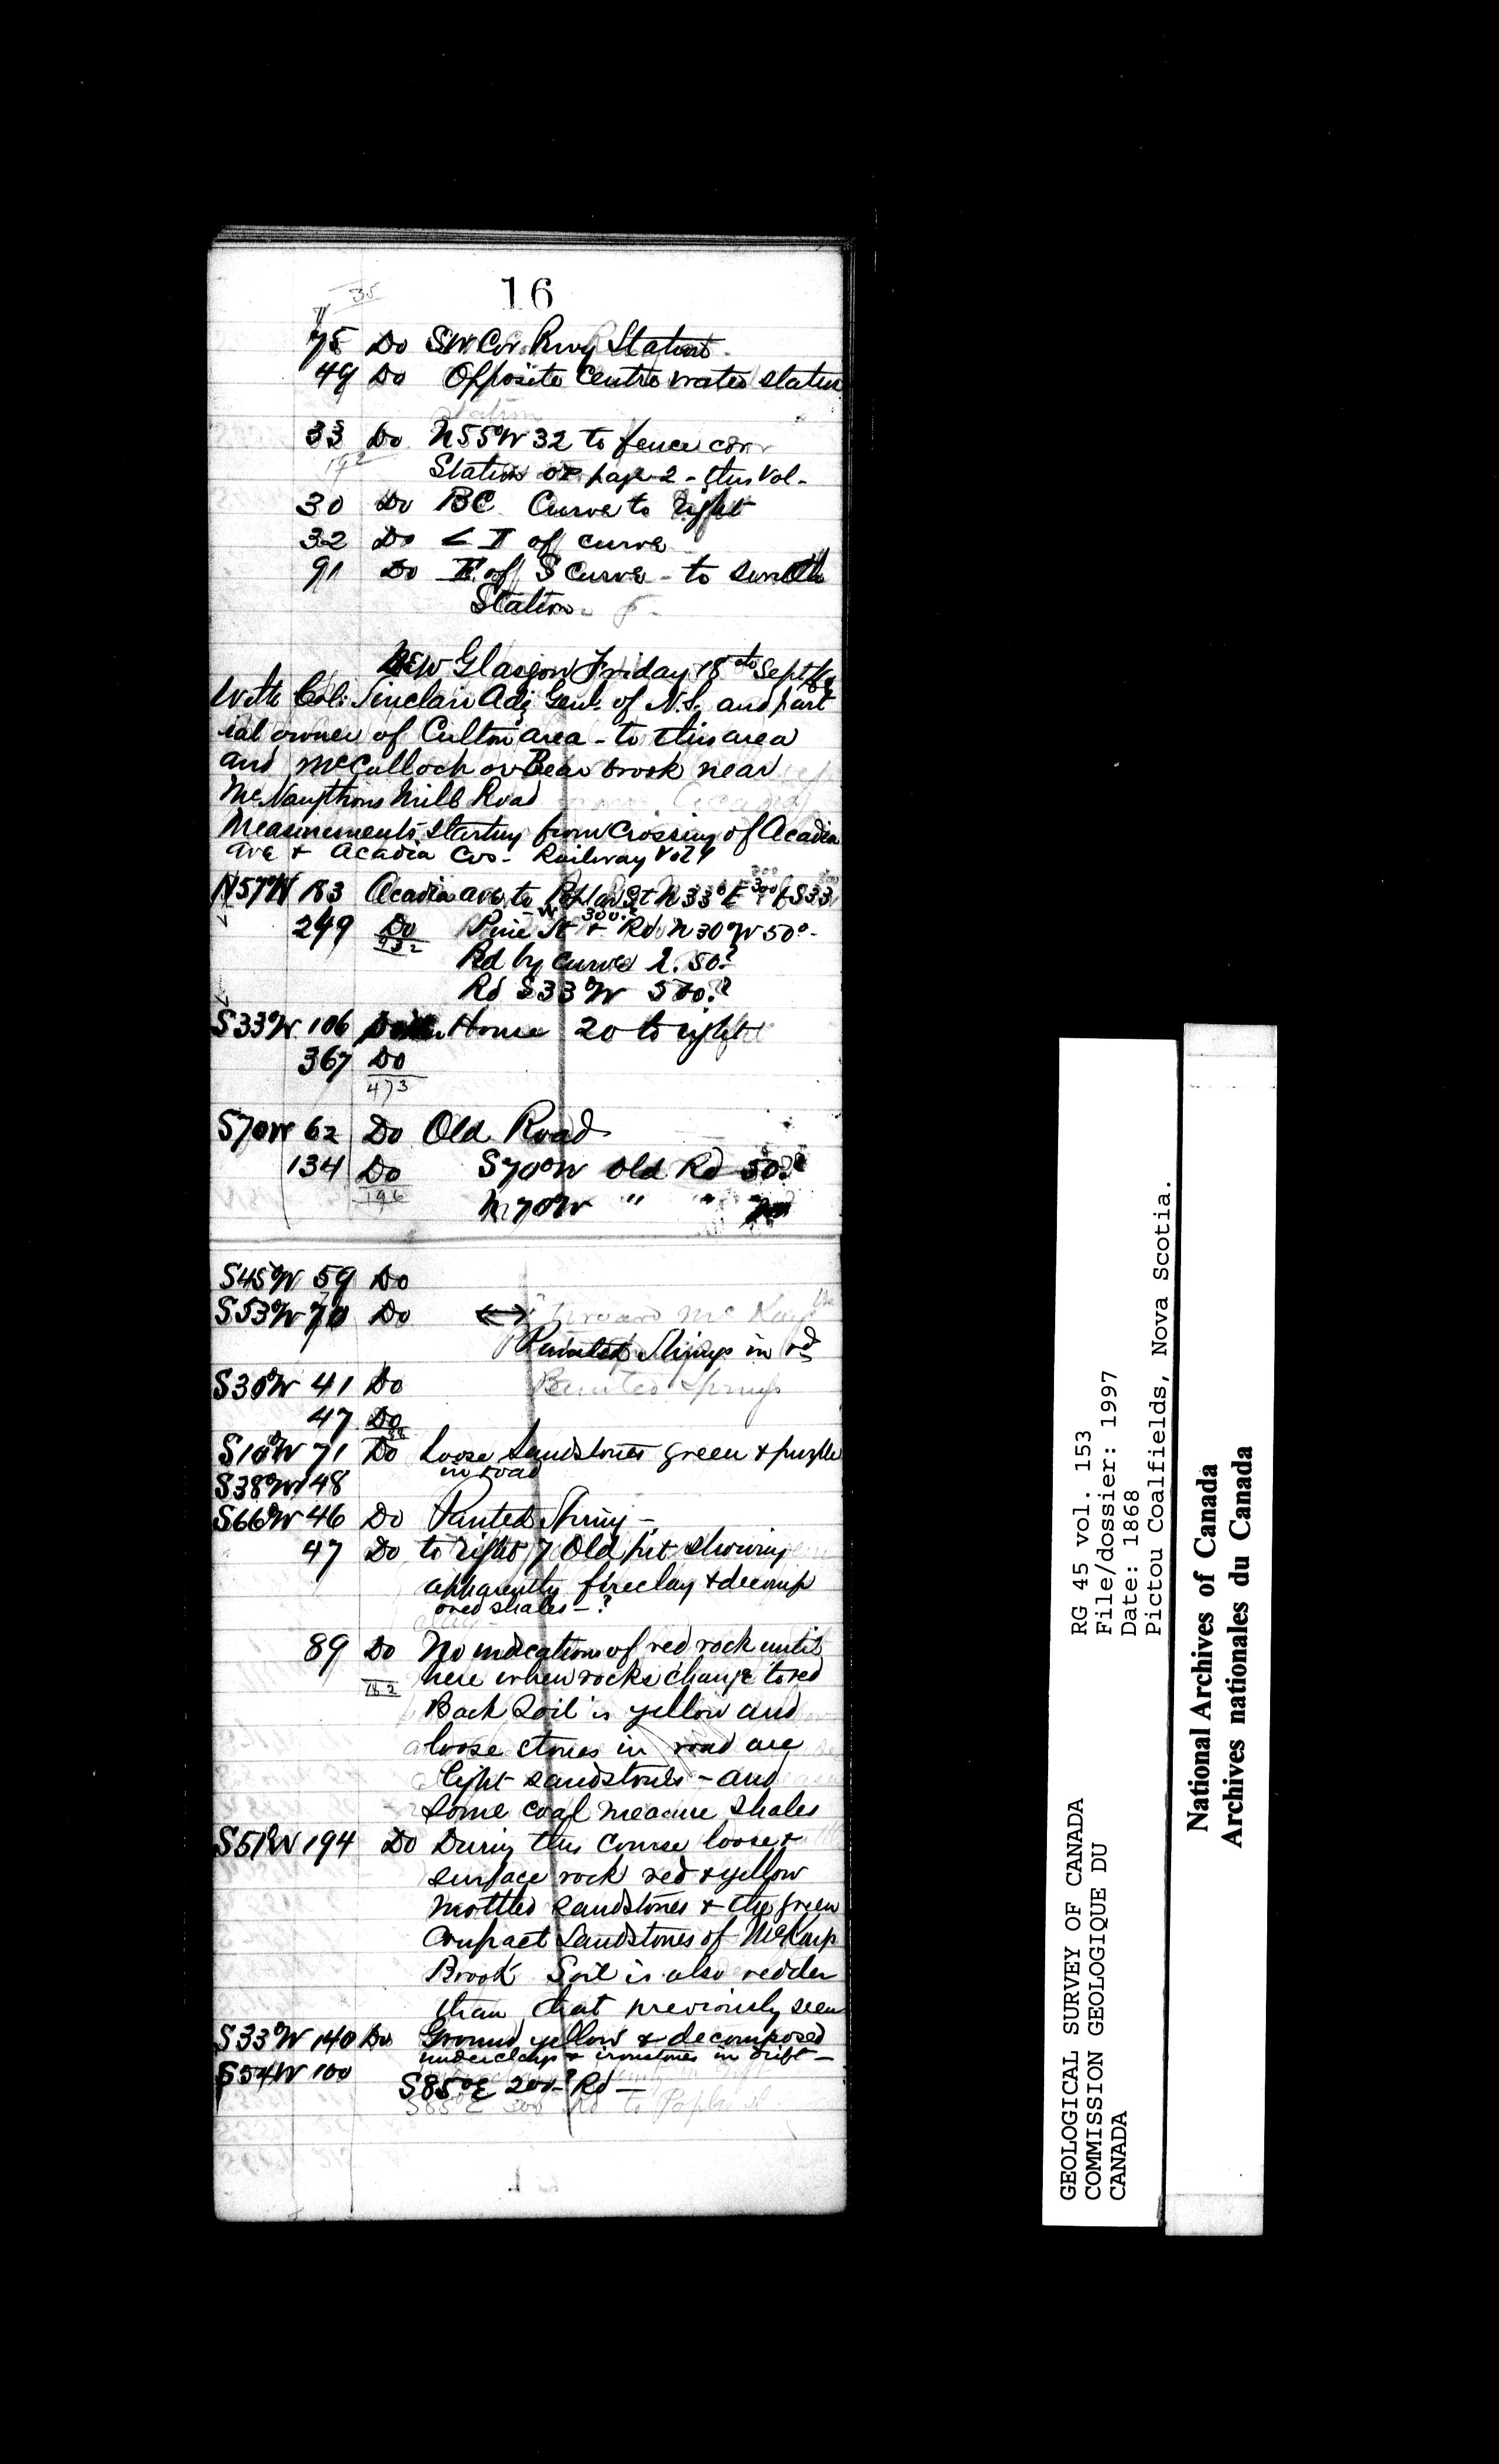 16
35
75 Do SW Cor. Rwy Station
49 Do Opposite Centre water station
station
33 Do N55°W 32 to fence corr
192
Station on page 2 - this Vol-
30 Do BC Curve to right
32 Do < I of curve
91 Do of S Curve - to
Station
New Glasgow Friday 18th Sept/68
With Col: Sinclair Adj Genl. of N.S. and part
ial owner of Culton area - to this area
and McCulloch or Bear brook near
McNaughtons Mill Road
Measurements starting from Crossing of Acadia
Ave & Acadia Cos- Railway
N57°W 183 Acadia ave, to Poplar St N33°E 300 & S33
W 300.?
249 Do Pine St & Rd N30°W 50°-
432
Rd by curve 2.50?
Rd S33°W 500.?
S33°W 106 House 20 to right
367 Do
473
S70W 62 Do Old Road
134 Do S70°W Old Rd 50?
196
N70W " "
S45°W 59 Do
S53°W 70 Do <-> McKay
Painted Springs in rd
S30°W 41 Do Painted Springs
47 Do
88
S10°W 71 Do Loose Sandstones green & purple
in road
S38°W 148
S66°W 46 Do Painted Spring -
47 Do to right 7 Old pit showing
apparently fireclay & decomp
osed shales - ?
89 Do No indications of red rock until
182 here when rocks change to red
Back Soil is yellow and
loose stones in road are
light sandstones - and
some coal measure shales
S51°W 194 Do During this Course loose &
surface rock red & yellow
mottled sandstones & the green
compact Sandstones of McKays
Brook Soil is also redder
than that previously seen
S33°W 140 Do Ground yellow & decomposed
underclays & ironstones in drift -
S54W 100
S85°E 200-? Rd -
S85°E 300 Rd to Poplar St.
GEOLOGICAL SURVEY OF CANADA
COMMISSION GEOLOGIQUE DU
CANADA
RG 45 vol. 153
File/dossier: 1997
Date: 1868
Pictou Coalfields, Nova Scotia.
National Archives of Canada
Archives nationales du Canada